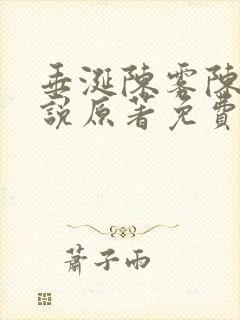 垂涎陳霧陳
說原著免費
蕭子雨